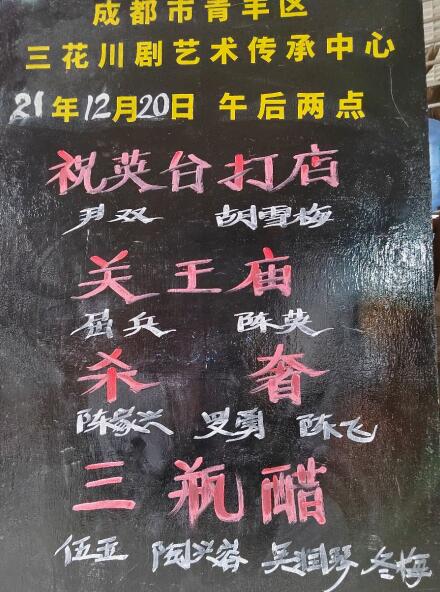 成都市青羊区
三花川剧艺术传承中心
21年12月20日 午后两点
祝英台打店
尹双 胡雪梅
关王庙
屈兵 陈英
杀 奢
陈家兴 罗勇 陈飞
三瓶醋
伍亚 陶兴蓉 吴桂琴 冬梅